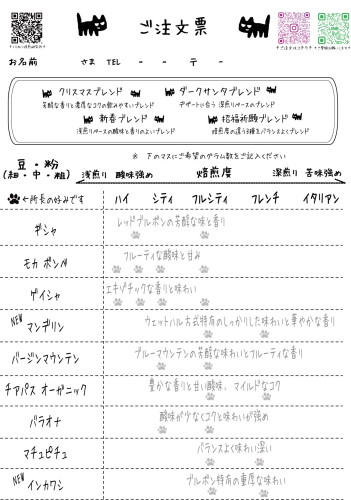 ご注文票
お名前 さま TEL - - 〒 -
クリスマスブレンド
芳醇な香りと濃厚なコクの飲みやすいブレンド
ダークサンタブレンド
デザートに合う 深煎りベースのブレンド
新春ブレンド
浅煎りベースの酸味と香りのよいブレンド
招福祈願ブレンド
焙煎度の違う3種とバランスよくブレンド
※ 下のマスにご希望のグラム数をご記入ください
豆・粉
(細・中・粗)
浅煎り 酸味強め 焙煎度 深煎り 苦味強め
←所長の好みです ハイ シティ フルシティ フレンチ イタリアン
レッドブルボンの芳醇な味と香り
ギシャ
フルーティな酸味と甘み
モカ ボンベ
エキゾチックな香りと味わい
ゲイシャ
ウェットハル方式特有のしっかりした味わいと華やかな香り
NEW マンデリン
ブルーマウンテンの芳醇な味わいとフルーティな香り
バージンマウンテン
豊かな香りと甘い酸味、マイルドなコク
チアパス オーガニック
酸味が少なくコクと味わいが強め
バラオナ
バランスよく味わい深い
マチュピチュ
ブルボン特有の重厚な味わい
NEW インカワシ